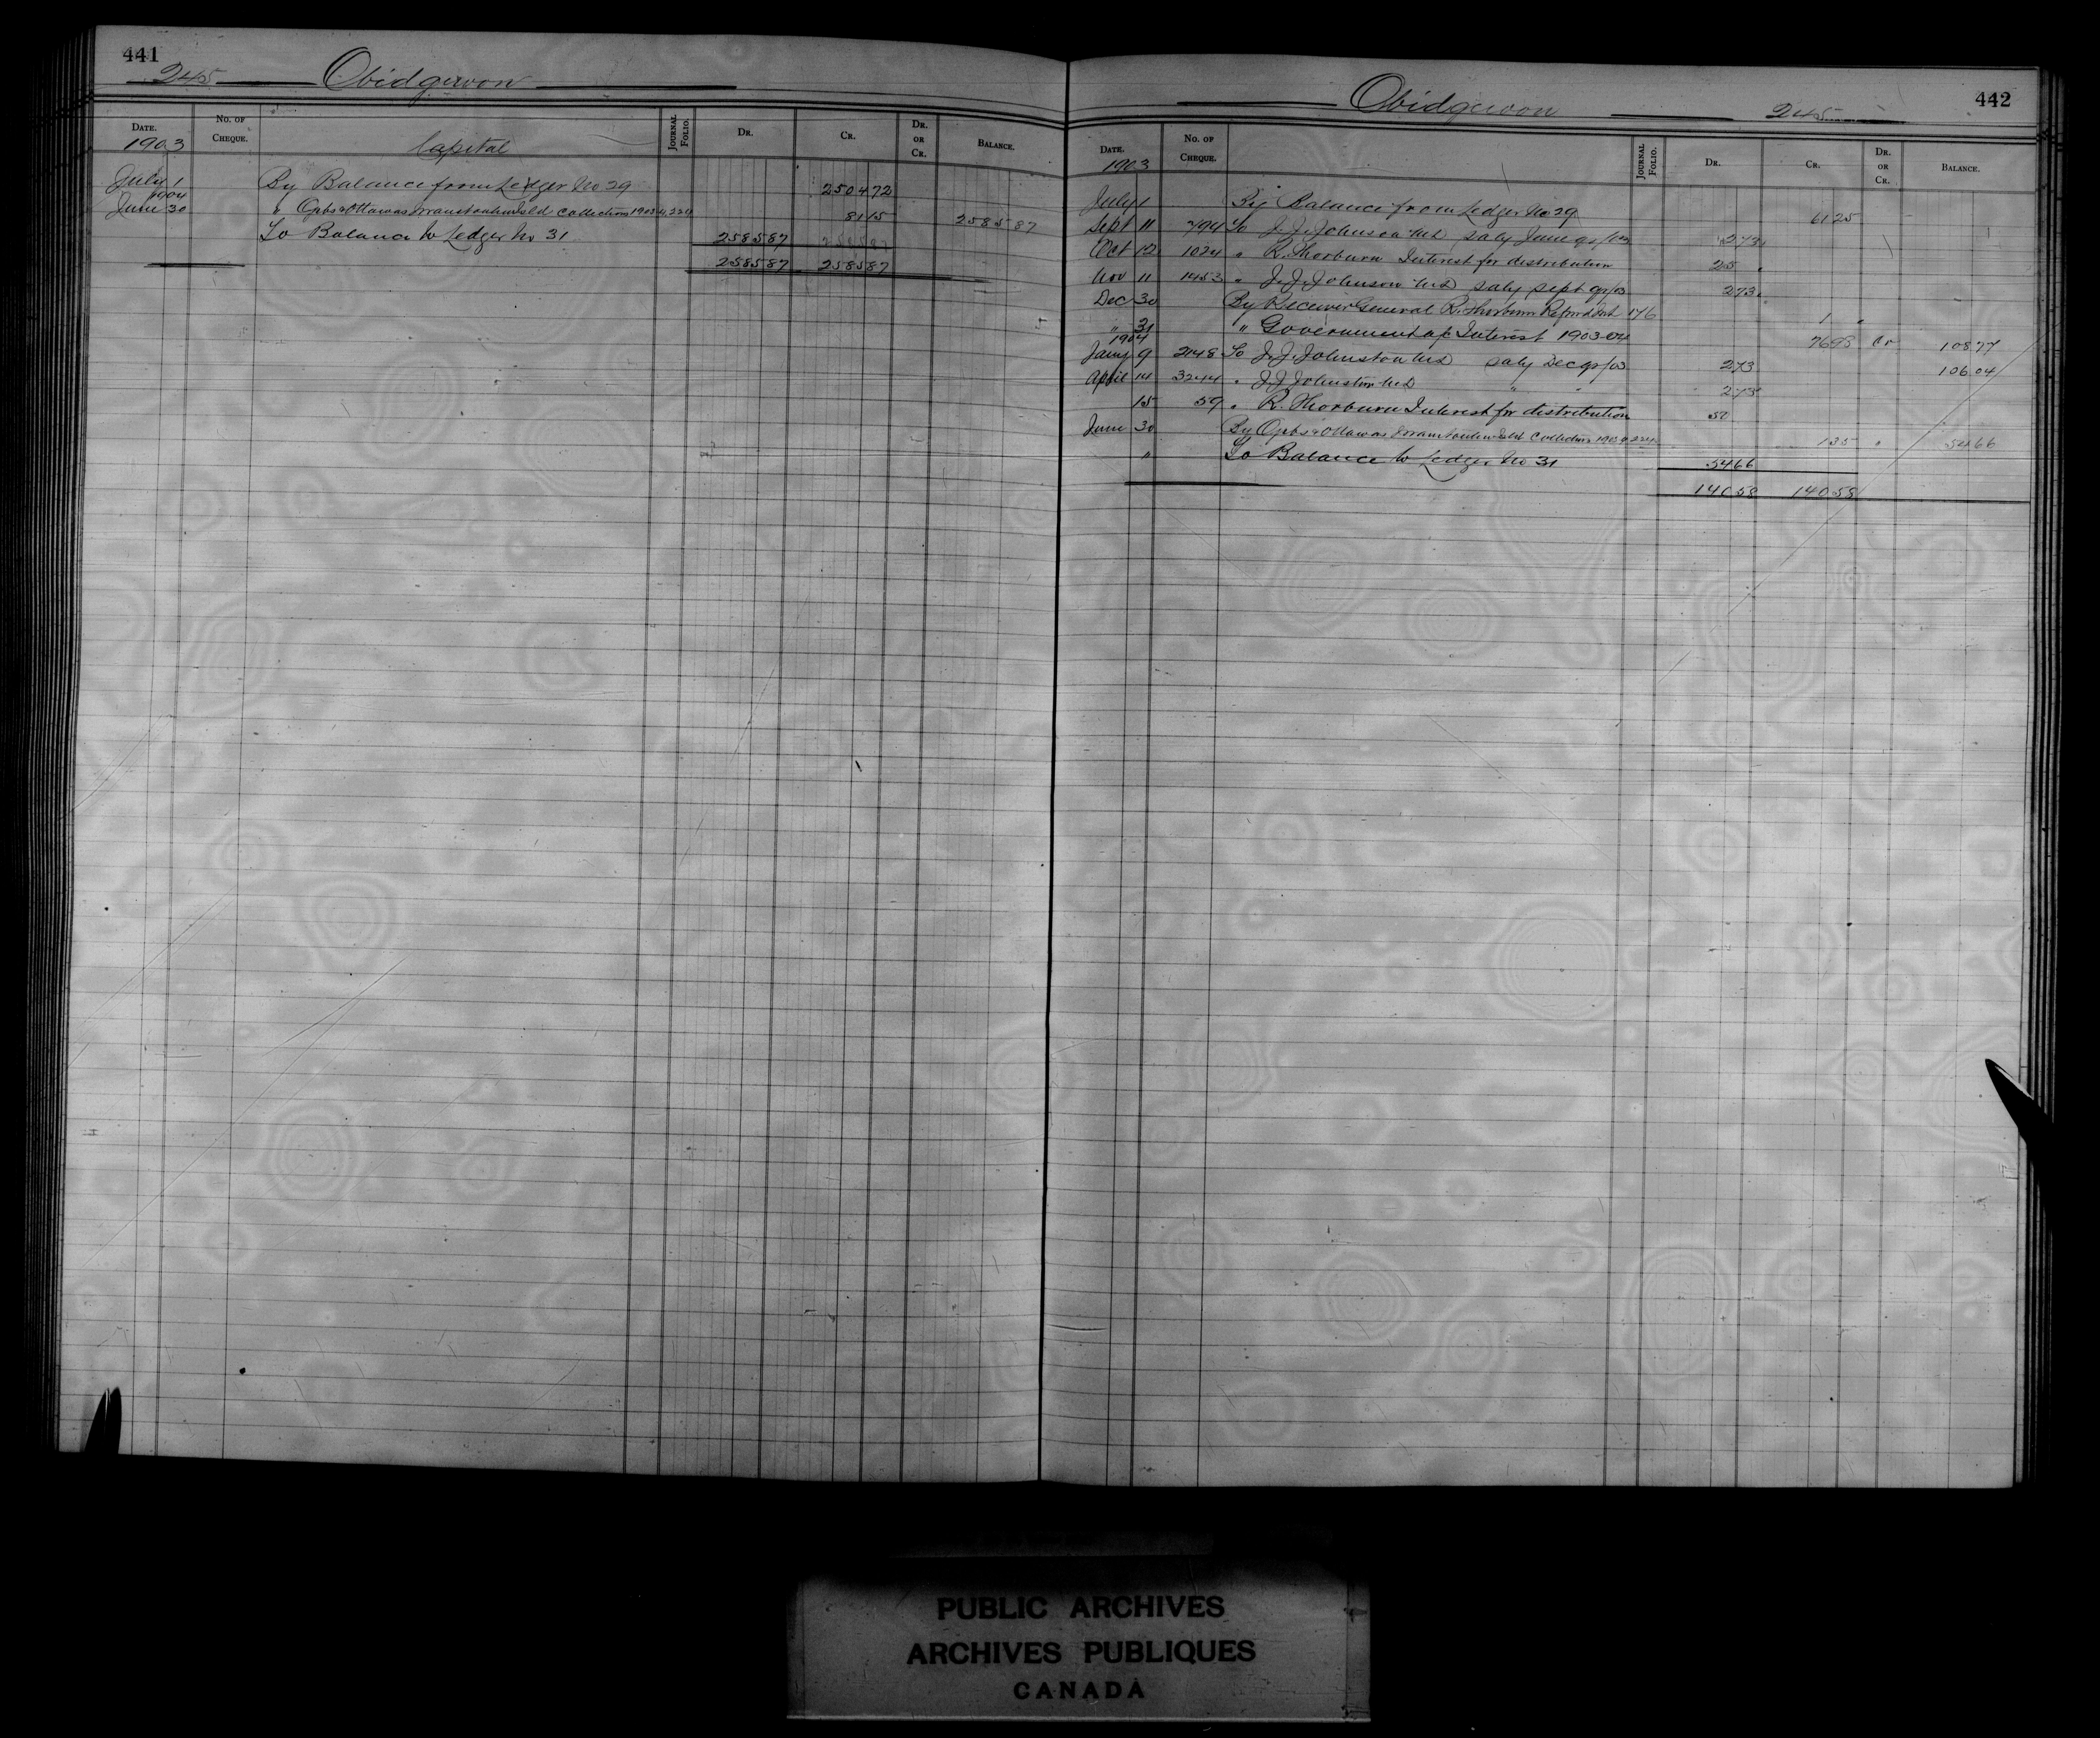 441
245 Obidgewon
Date. No. of Cheque. Journal Folio. Dr. Cr. Dr. or Cr. Balance.
1903 Capital
July 1 By Balance from Ledger No 29 2504 72
1904
June 30 " Ojibs & Ottawas Manitoulin Isld Collections 1903-4 224 81 15 2585 87
To Balance to Ledger No 31 2585 87
2585 87 2585 87
Obidgewon 245
442
Date. No. of Cheque. Journal Folio. Dr. Cr. Dr. or Cr. Balance.
1903
July 1 By Balance from Ledger No 29 61 25
Sept 11 794 To J. J. Johnson Md saly June qr/03 2 73
Oct 12 1024 " R. Thorburn Interest for distribution 25 "
Nov 11 1453 " J. J. Johnson Md saly Sept qr/03 2 73
Dec 30 By Receiver General R. Thorburn Refund Int 176 1 "
" 31 " Government a/c Interest 1903-04 76 98 Cr 108 77
1904
Jany 9 2148 To J. J. Johnston Md saly Dec qr/03 2 73 106 04
April 14 3244 " J. J. Johnston Md " " 2 73
15 59 " R. Thorburn Interest for distribution 50
June 30 By Ojibs & Ottawas Manitoulin Isld Collections 1903-4 224 1 35 " 54 66
" To Balance to Ledger No 31 54 66
140 58 140 58
PUBLIC ARCHIVES
ARCHIVES PUBLIQUES
CANADA